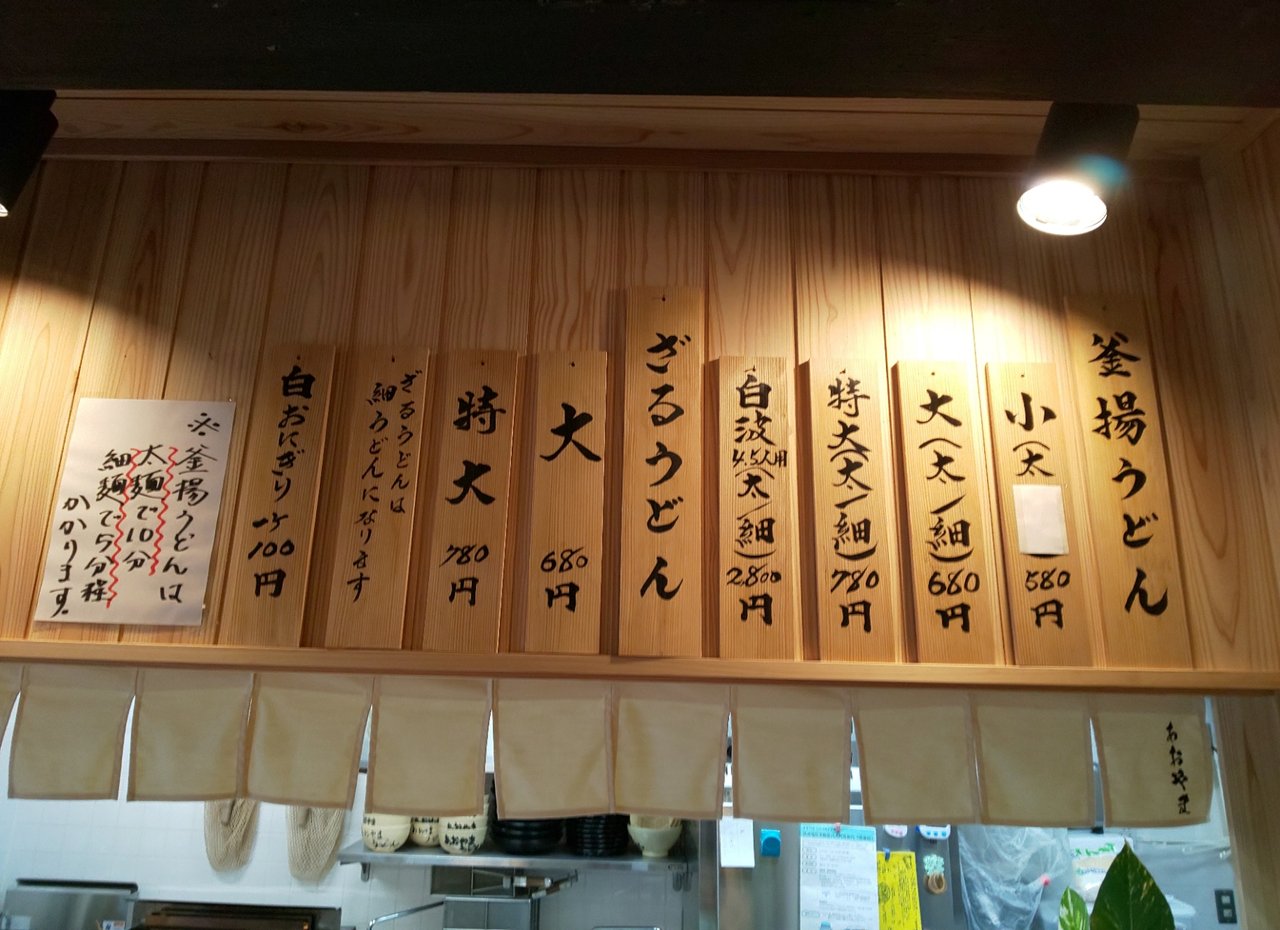 釜揚うどん
小(太
580
円
大(太/細)
680
円
特大(太/細)
780
円
白波
4.5人用
(太/細)
2,800
円
ざるうどん
大
680
円
特大
780
円
ざるうどんは
細うどんになります
白おにぎり一ケ
100
円
※釜揚うどんは
太麺で10分
細麺で15分程
かかります。
あおやま